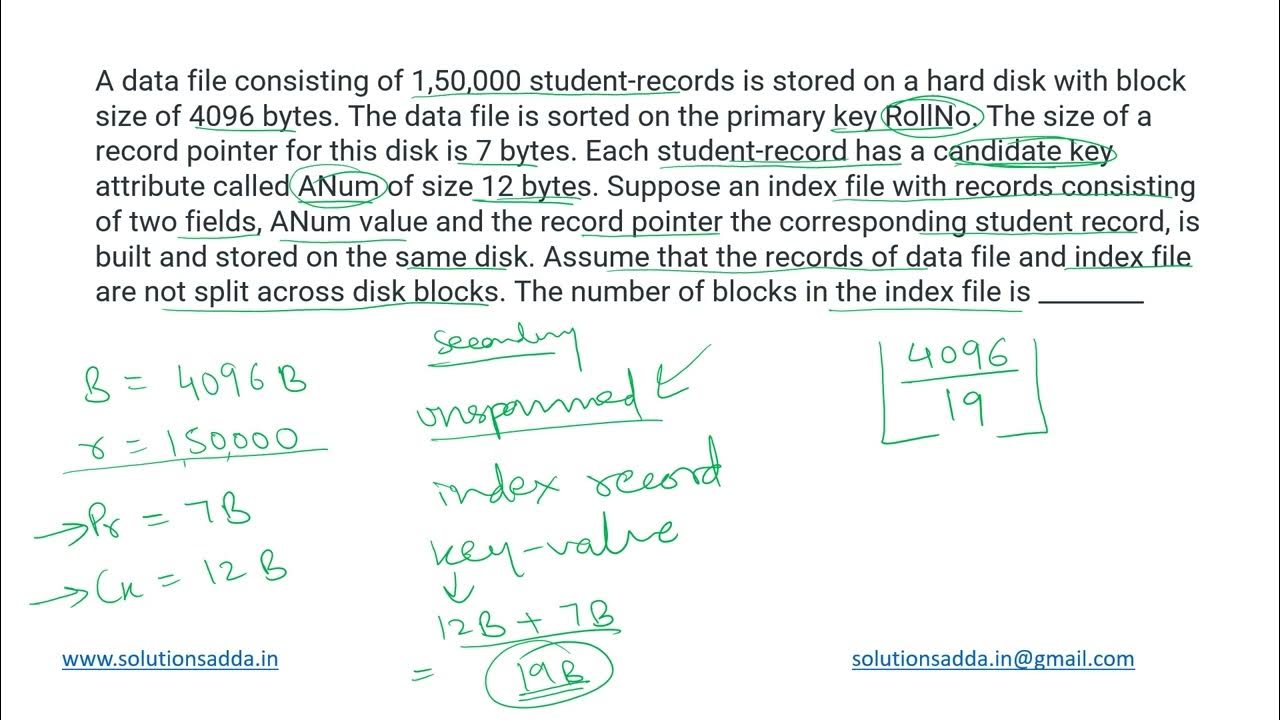 A data file consisting of 1,50,000 student-records is stored on a hard disk with block
size of 4096 bytes. The data file is sorted on the primary key RollNo. The size of a
record pointer for this disk is 7 bytes. Each student-record has a candidate key
attribute called ANum of size 12 bytes. Suppose an index file with records consisting
of two fields, ANum value and the record pointer the corresponding student record, is
built and stored on the same disk. Assume that the records of data file and index file
are not split across disk blocks. The number of blocks in the index file is ________
B = 4096 B
r = 150,000
→ Pr = 7B
→ Ck = 12 B
secondary
unspanned
index record
key-value
↓
12B + 7B
= 19B
4096
19
www.solutionsadda.in
solutionsadda.in@gmail.com